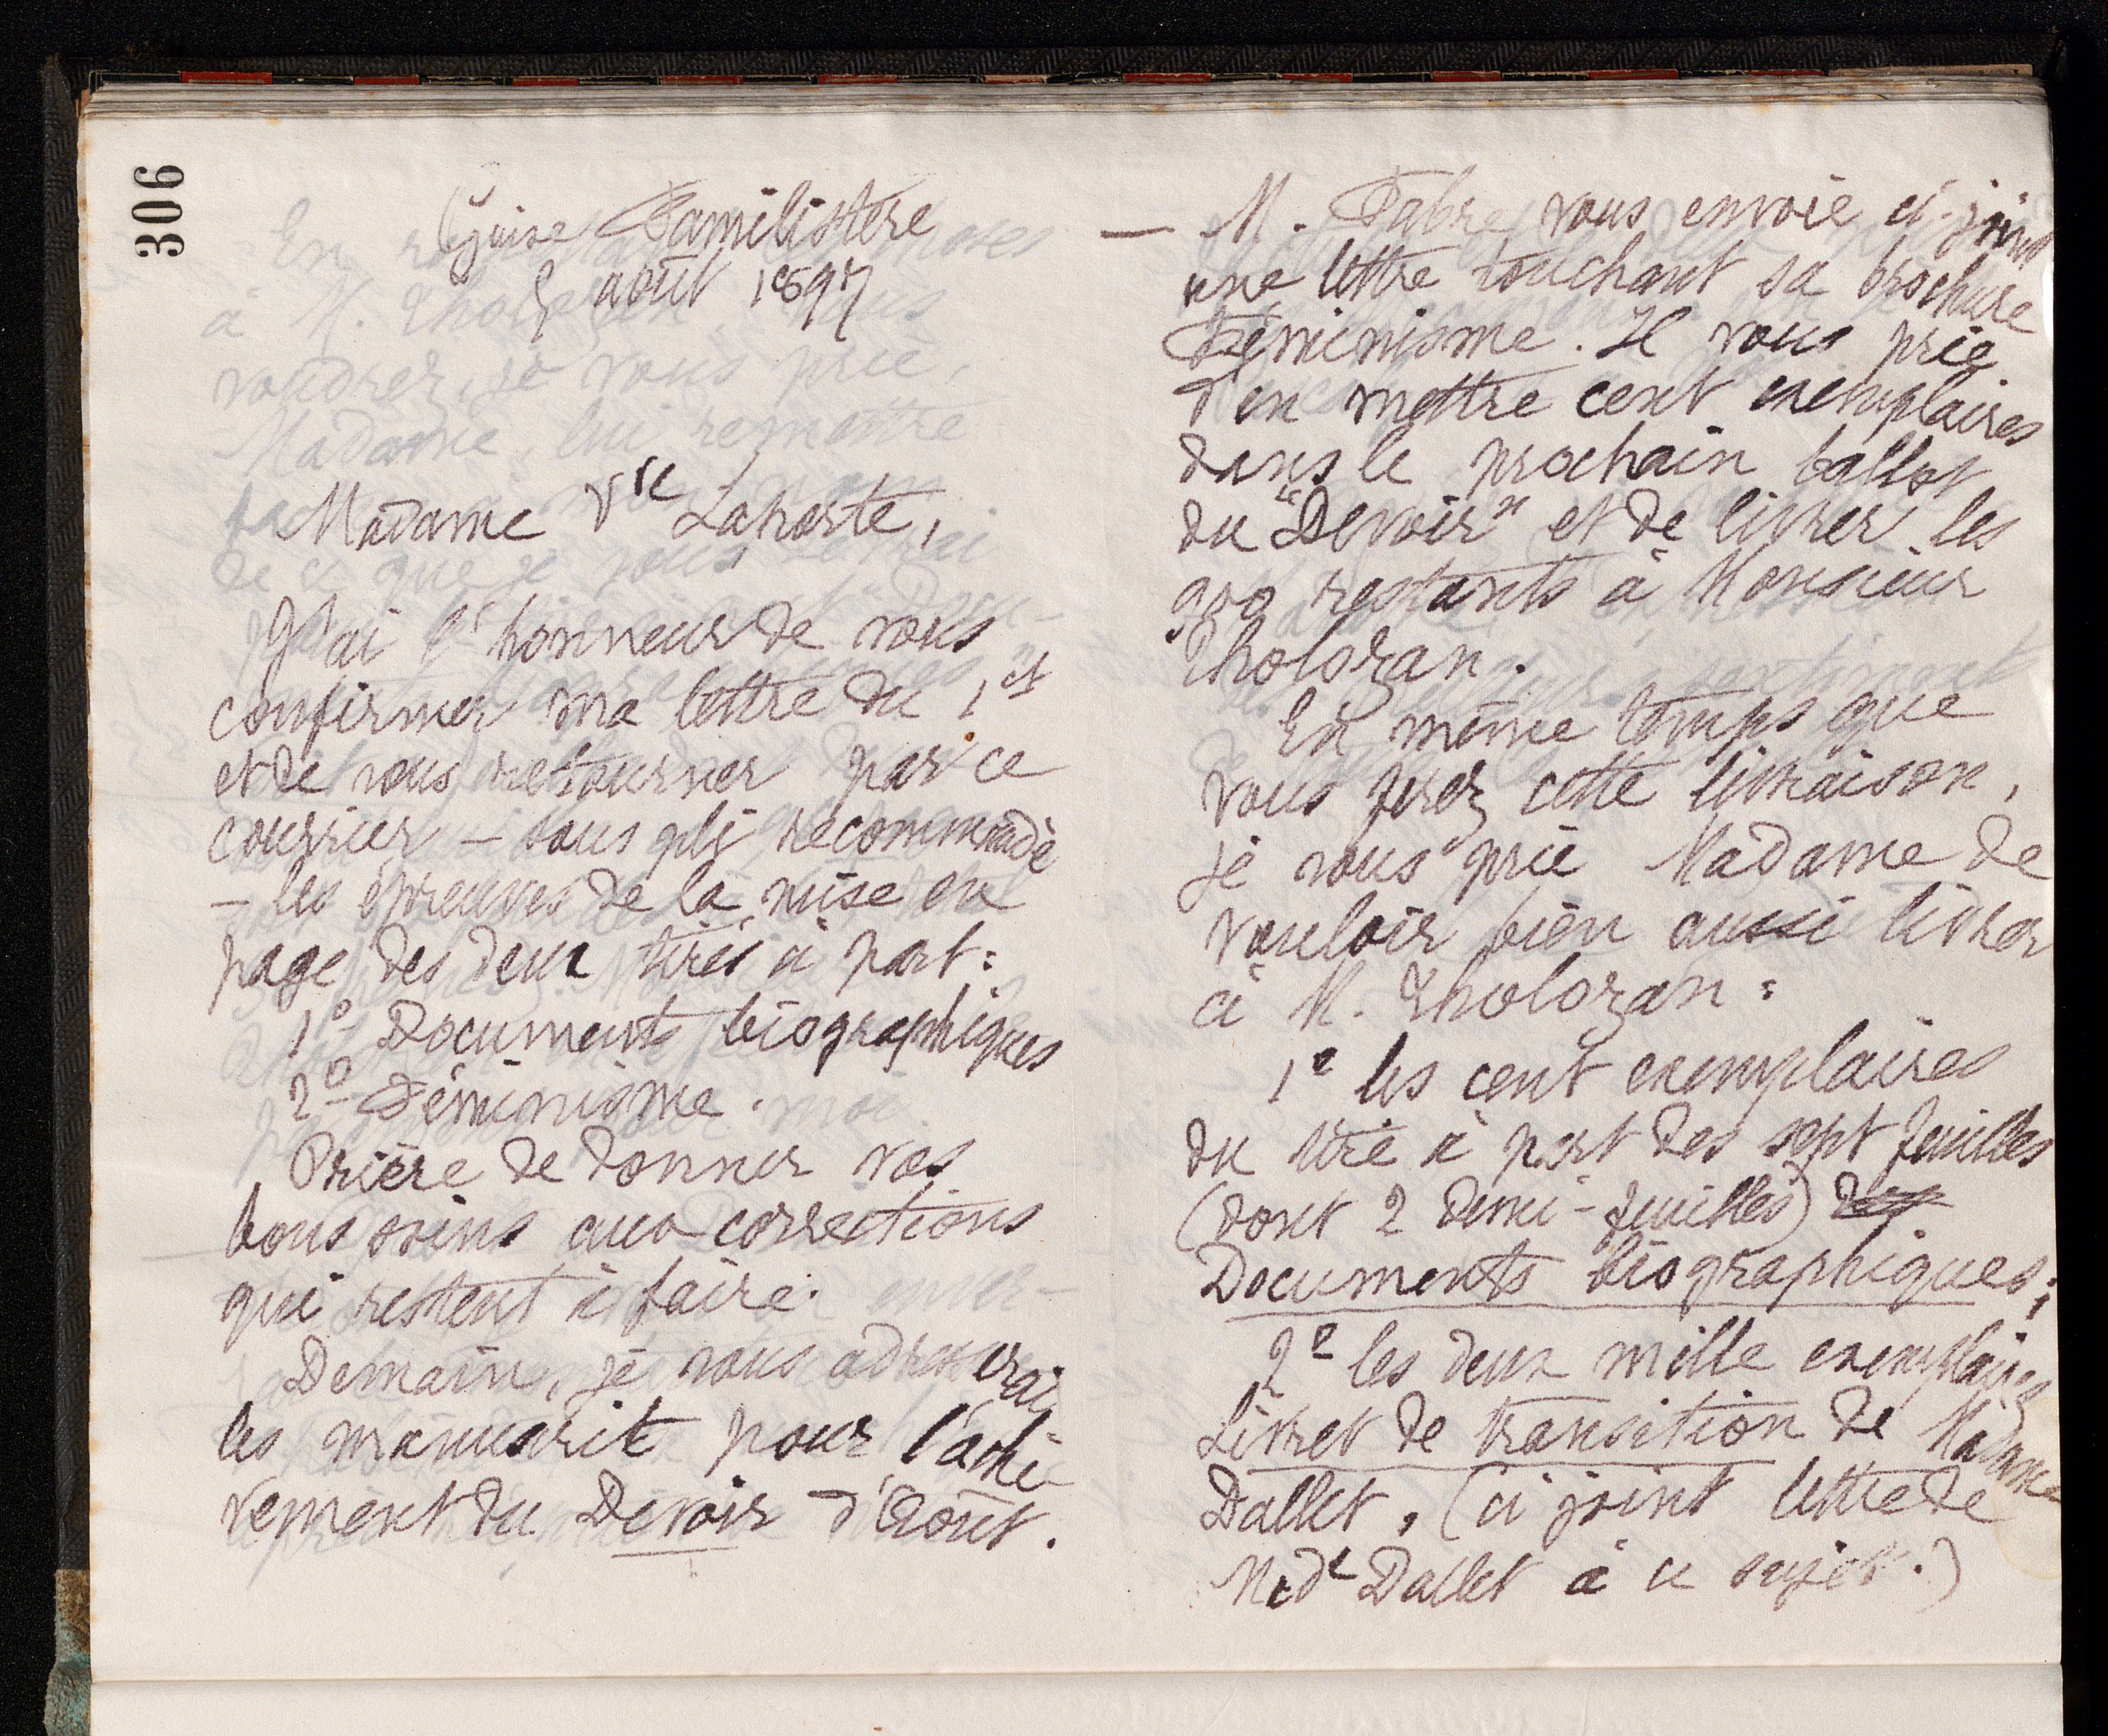 306
Guise Familistère
5 août 1897
Madame Vve Laporte,
J'ai l'honneur de vous
confirmer ma lettre du 1er
et de vous retourner par ce
courrier – sous pli recommandé
– les épreuves de la mise en
page des deux tirés à part :
1º Documents biographiques
2º Féminisme.
Prière de donner vos
bons soins aux corrections
qui restent à faire.
Demain, je vous adresserai
les manuscrits pour l'achè-
vement du Devoir d'Août.
— M. Fabre vous envoie ci-joint
une lettre touchant sa brochure
Féminisme. Il vous prie
d'en mettre cent exemplaires
dans le prochain ballot
du "Devoir" et de livrer les
900 restants à Monsieur
Tholozan.
En même temps que
vous ferez cette livraison,
je vous prie Madame de
vouloir bien aussi livrer
à M. Tholozan :
1º les cent exemplaires
du tiré à part des sept feuilles
(dont 2 demi-feuilles) des
Documents biographiques ;
2º les deux mille exemplaires
Livret de transition de Madame
Dallet, (ci joint lettre de
Mde Dallet à ce sujet.)